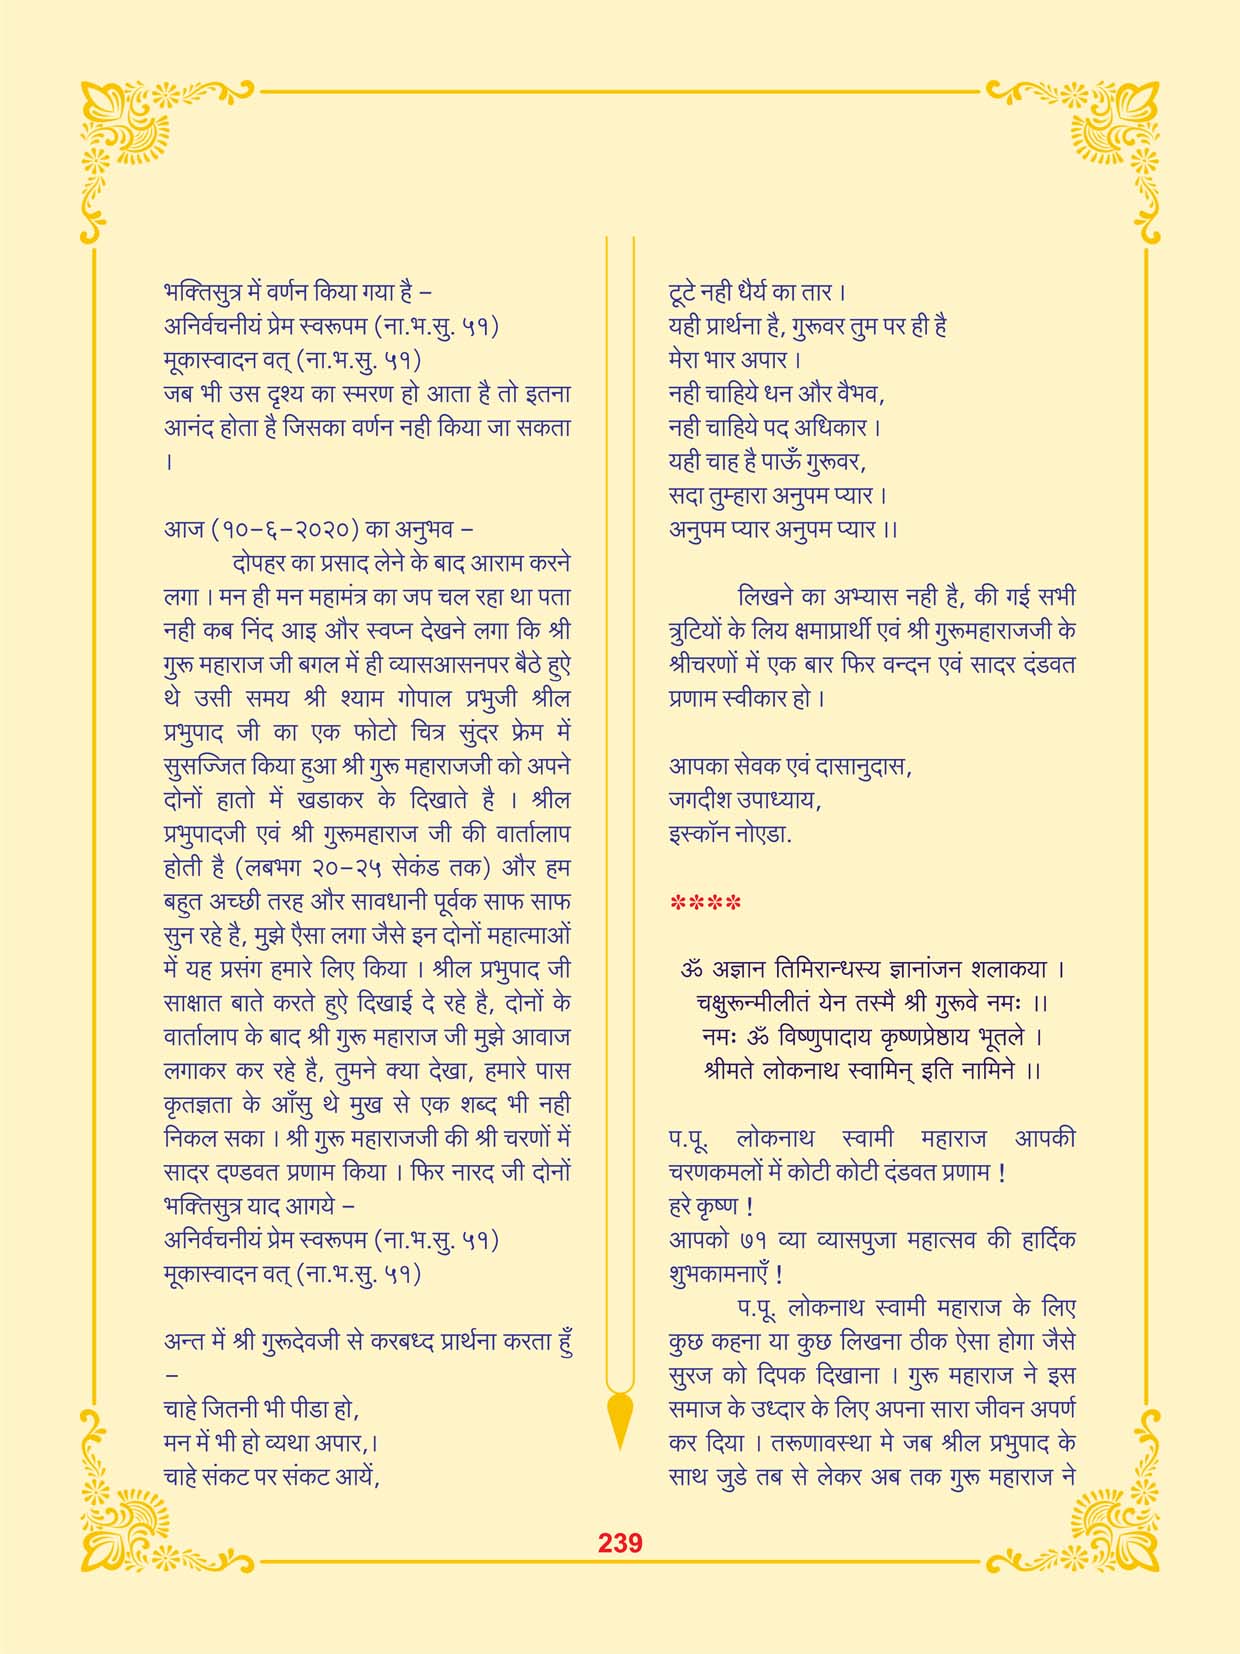 भक्तिसुत्र में वर्णन किया गया है –
अनिर्वचनीयं प्रेम स्वरूपम (ना.भ.सु. ५१)
मूकास्वादन वत् (ना.भ.सु. ५१)
जब भी उस दृश्य का स्मरण हो आता है तो इतना
आनंद होता है जिसका वर्णन नही किया जा सकता
।
आज (१०–६–२०२०) का अनुभव –
दोपहर का प्रसाद लेने के बाद आराम करने
लगा । मन ही मन महामंत्र का जप चल रहा था पता
नही कब निंद आइ और स्वप्न देखने लगा कि श्री
गुरू महाराज जी बगल में ही व्यासआसनपर बैठे हुऐ
थे उसी समय श्री श्याम गोपाल प्रभुजी श्रील
प्रभुपाद जी का एक फोटो चित्र सुंदर फ्रेम में
सुसज्जित किया हुआ श्री गुरू महाराजजी को अपने
दोनों हातो में खडाकर के दिखाते है । श्रील
प्रभुपादजी एवं श्री गुरूमहाराज जी की वार्तालाप
होती है (लबभग २०–२५ सेकंड तक) और हम
बहुत अच्छी तरह और सावधानी पूर्वक साफ साफ
सुन रहे है, मुझे ऐसा लगा जैसे इन दोनों महात्माओं
में यह प्रसंग हमारे लिए किया । श्रील प्रभुपाद जी
साक्षात बाते करते हुऐ दिखाई दे रहे है, दोनों के
वार्तालाप के बाद श्री गुरू महाराज जी मुझे आवाज
लगाकर कर रहे है, तुमने क्या देखा, हमारे पास
कृतज्ञता के आँसु थे मुख से एक शब्द भी नही
निकल सका । श्री गुरू महाराजजी की श्री चरणों में
सादर दण्डवत प्रणाम किया । फिर नारद जी दोनों
भक्तिसुत्र याद आगये –
अनिर्वचनीयं प्रेम स्वरूपम (ना.भ.सु. ५१)
मूकास्वादन वत् (ना.भ.सु. ५१)
अन्त में श्री गुरूदेवजी से करबध्द प्रार्थना करता हुँ
–
चाहे जितनी भी पीडा हो,
मन में भी हो व्यथा अपार,।
चाहे संकट पर संकट आयें,
टूटे नही धैर्य का तार ।
यही प्रार्थना है, गुरूवर तुम पर ही है
मेरा भार अपार ।
नही चाहिये धन और वैभव,
नही चाहिये पद अधिकार ।
यही चाह है पाऊँ गुरूवर,
सदा तुम्हारा अनुपम प्यार ।
अनुपम प्यार अनुपम प्यार ।।
लिखने का अभ्यास नही है, की गई सभी
त्रुटियों के लिय क्षमाप्रार्थी एवं श्री गुरूमहाराजजी के
श्रीचरणों में एक बार फिर वन्दन एवं सादर दंडवत
प्रणाम स्वीकार हो ।
आपका सेवक एवं दासानुदास,
जगदीश उपाध्याय,
इस्कॉन नोएडा.
****
ॐ अज्ञान तिमिरान्धस्य ज्ञानांजन शलाकया ।
चक्षुरून्मीलीतं येन तस्मै श्री गुरूवे नमः ।।
नमः ॐ विष्णुपादाय कृष्णप्रेष्ठाय भूतले ।
श्रीमते लोकनाथ स्वामिन् इति नामिने ।।
प.पू. लोकनाथ स्वामी महाराज आपकी
चरणकमलों में कोटी कोटी दंडवत प्रणाम !
हरे कृष्ण !
आपको ७१ व्या व्यासपुजा महात्सव की हार्दिक
शुभकामनाएँ !
प.पू. लोकनाथ स्वामी महाराज के लिए
कुछ कहना या कुछ लिखना ठीक ऐसा होगा जैसे
सुरज को दिपक दिखाना । गुरू महाराज ने इस
समाज के उध्दार के लिए अपना सारा जीवन अपर्ण
कर दिया । तरूणावस्था मे जब श्रील प्रभुपाद के
साथ जुडे तब से लेकर अब तक गुरू महाराज ने
239